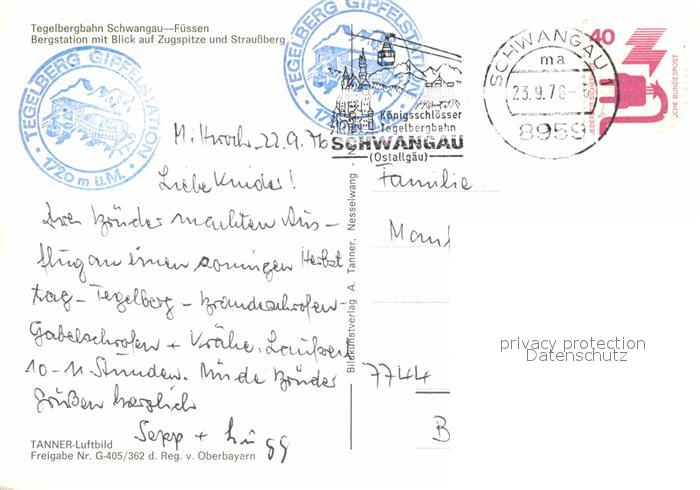 Tegelbergbahn Schwangau—Füssen
Bergstation mit Blick auf Zugspitze und Straußberg
TEGELBERG GIPFELSTATION
1720 m ü.M.
TEGELBERG GIPFELSTATION
Königsschlösser
Tegelbergbahn
SCHWANGAU
(Ostallgäu)
SCHWANGAU
ma
23.9.76
8959
40
DEUTSCHE BUNDESPOST
Mittwoch 22.9.76
Liebe Kinder!
Drei Brüder machten Aus-
flug an einen sonnigen Herbst
tag - Tegelberg - Branderschrofen -
Gabelschrofen + Krähe. Laufzeit
10-11 Stunden. Müde Brüder
grüßen herzlich
Sepp +
TANNER-Luftbild
Freigabe Nr. G-405/362 d. Reg. v. Oberbayern
Bildkunstverlag A. Tanner, Nesselwang
Familie
7744
B
privacy protection
Datenschutz